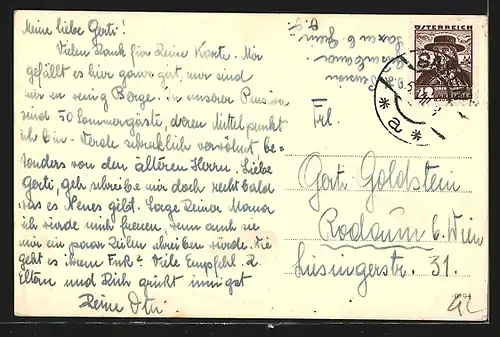 Meine liebe Gerti!
Vielen Dank für Deine Karte. Mir
gefällt es hier ganz gut, nur sind
mir zu wenig Berge. In unserer Pension
sind 50 Sommergäste, deren Mittelpunkt
ich bin. Werde schrecklich verwöhnt be-
sonders von den älteren Herrn. Liebe
Gerti, geh schreibe mir doch recht bald
was es Neues gibt. Sage Deiner Mama
ich würde mich freuen, wenn auch sie
mir ein paar Zeilen schreiben würde. Wie
geht es ihrem Fuß? Viele Empfehl. d.
Eltern und Dich grüßt innigst
Deine
ÖSTERREICH
12
* a *
Frl.
Gerti Goldstein
Rodaun b. Wien
Liesingerstr. 31.